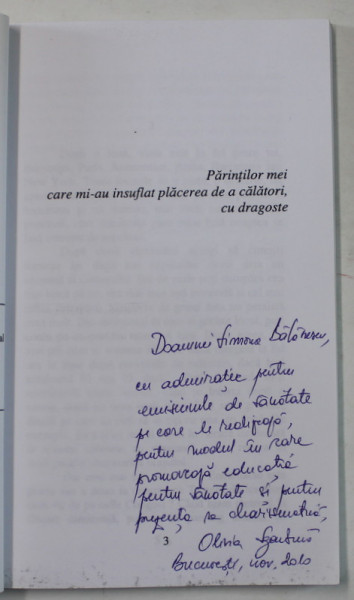 Părinților mei
care mi-au insuflat plăcerea de a călători,
cu dragoste
Doamnei Simona Bălănescu,
cu admirație pentru
emisiunile de sănătate
pe care le realizează,
pentru modul în care
promovează educația
pentru sănătate și pentru
prezența sa charismatică,
3
Olivia
București, nov. 2010